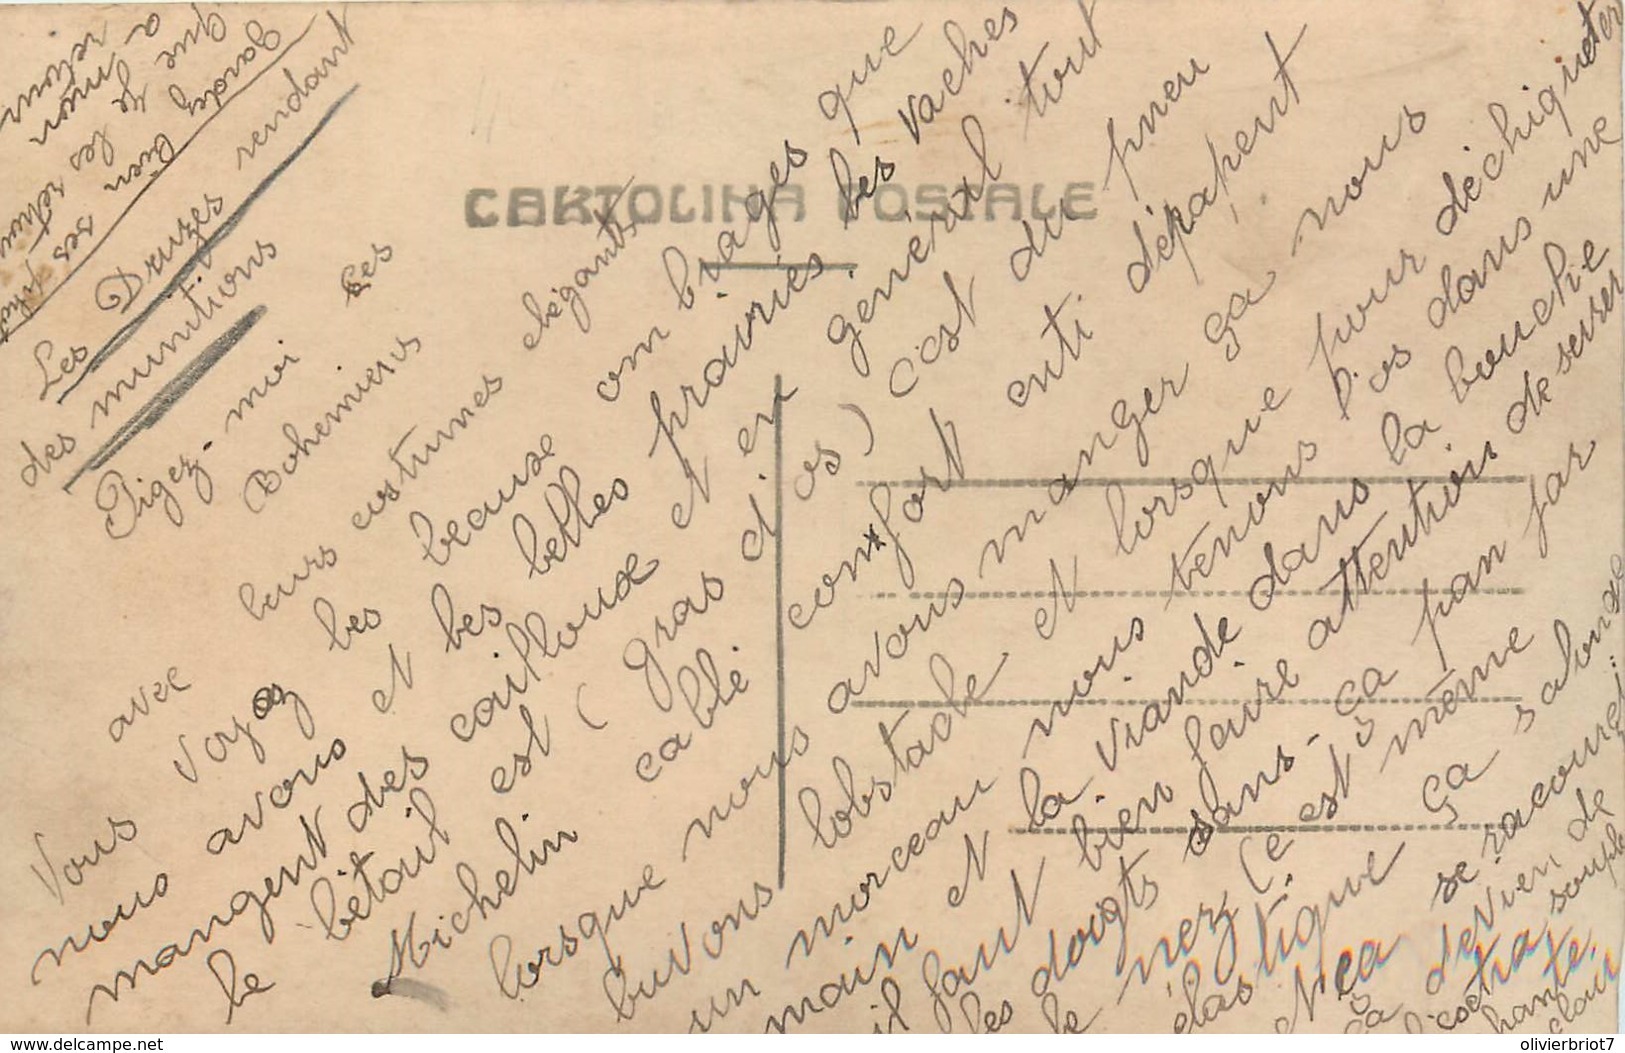 Gardez bien ses
que je les retrouve
a mon
retour
Les Druzes rendant
des munitions
CARTOLINA POSTALE
Pigez-moi ces
Bohemiens
avec leurs costumes elégants
Voyez les beaux om brages que
Vous nous avons et les belles prairies les vaches
mangent des cailloux et en général tout
le bétail est (gras d'os) c'est du pneu
Michelin cablé confort enti dérapent
lorsque nous avons manger ça nous
buvons l'obstacle et lorsque pour déchiqueter
un morceau nous tenons l'os dans une
main et la viande dans la bouche
il faut bien faire attention de serrer
les doigts sans-ça pan par
le nez (c'est même
élastique ça s'alonge
et ça se racourci
ça devien de
souple
olivierbriot7
www.delcampe.net